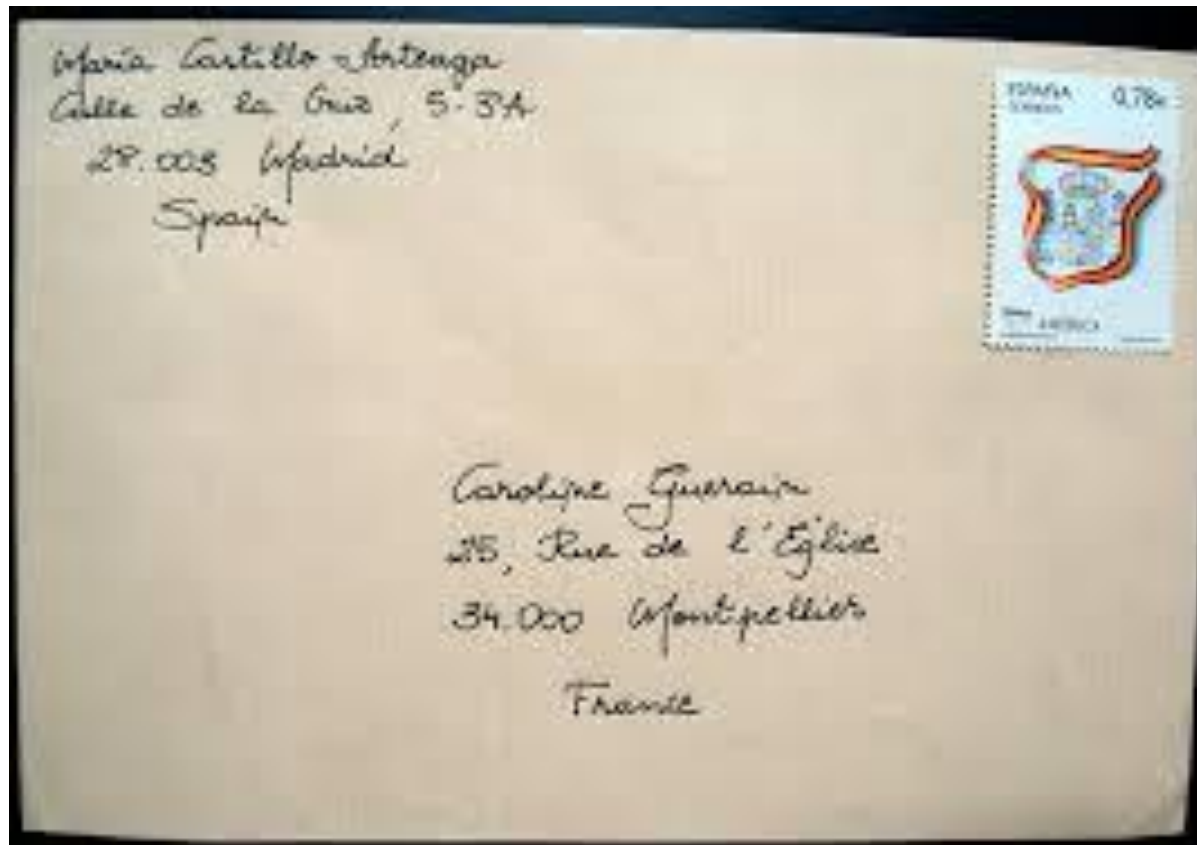 María Castillo-Arteaga
Calle de la Cruz, 5-3ºA
28.003 Madrid
Spain
ESPAÑA 0,78€
CORREOS
AMÉRICA
Caroline Guerain
25, Rue de l'Église
34.000 Montpellier
France